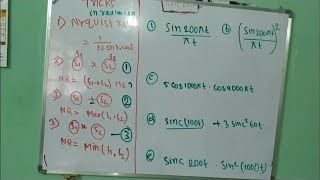 Tricks
in radians
1) Nyquist rate
= 1 / N interval
S1 S2 ①
NR = (f1+f2) Hz
2) S1 ± S2 ②
NR = Max(f1, f2)
3) S1 * S2 ③
NR = Min(f1, f2)
ⓐ sin200πt / πt
ⓑ (sin200πt / πt)²
ⓒ 5cos1000πt · cos4000πt
ⓓ sinc(100t) + 3sinc²60t
ⓔ sinc 200t · sin²(1000t)